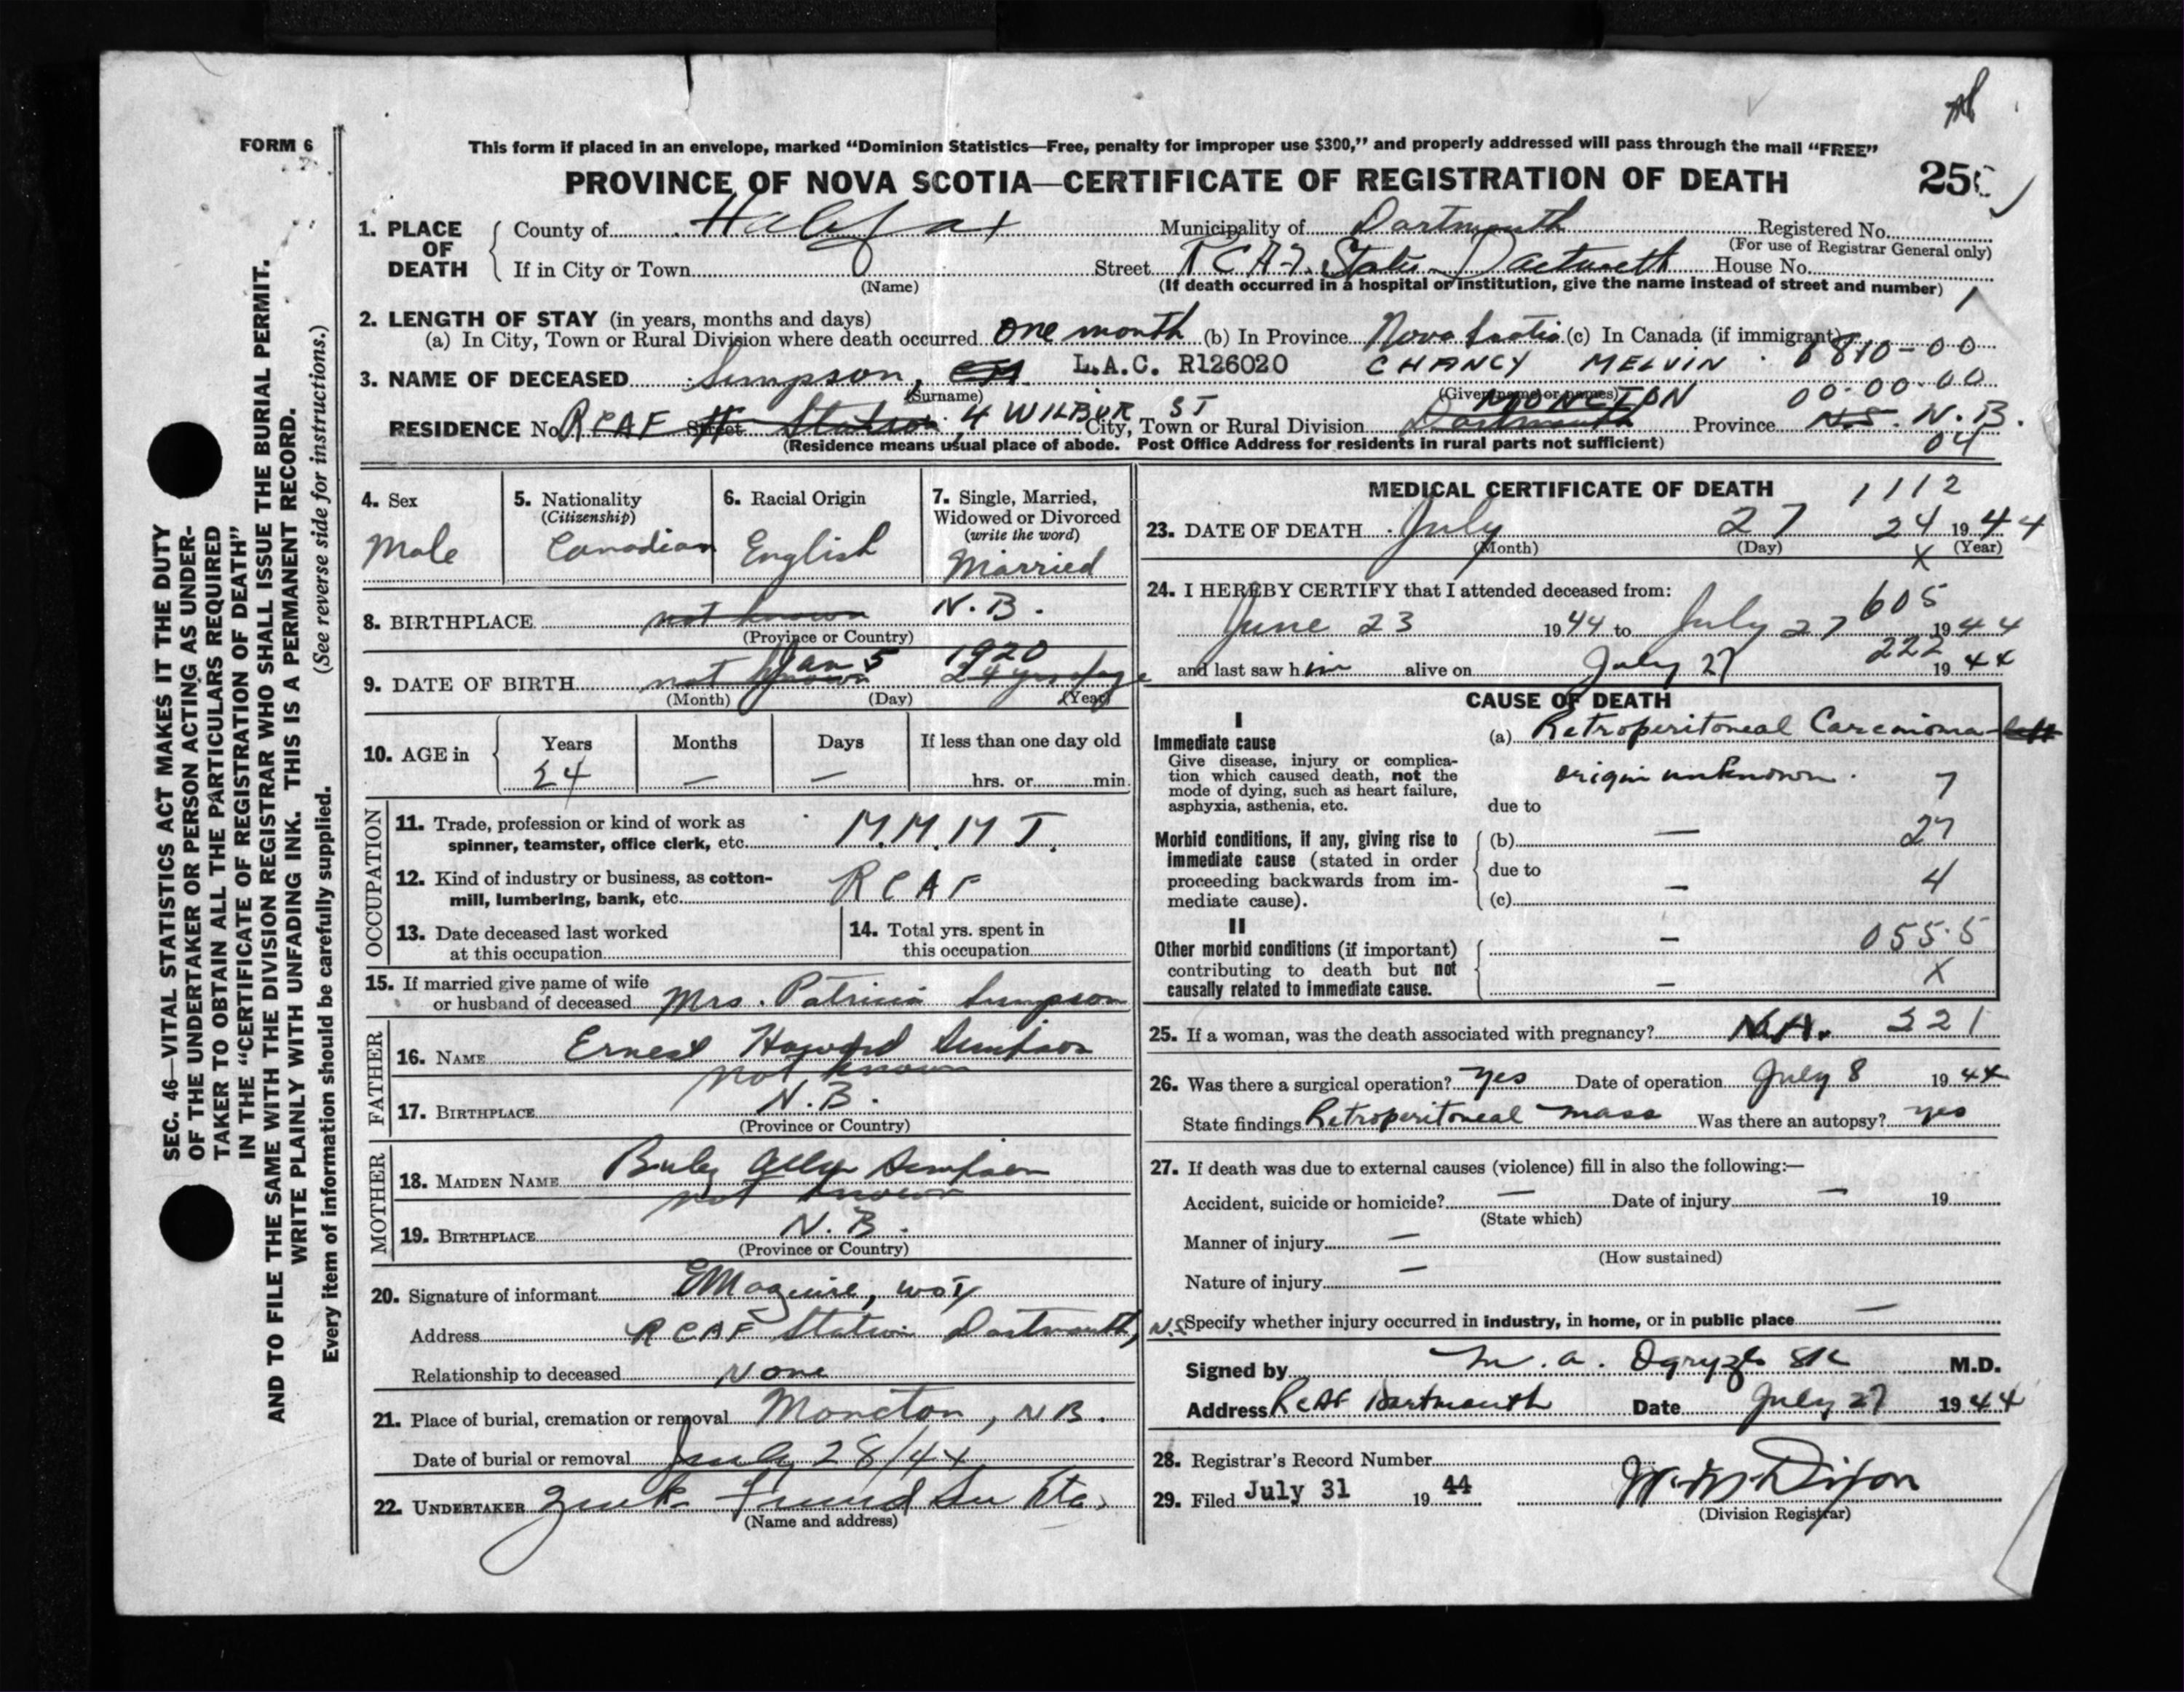 FORM 6
This form if placed in an envelope, marked “Dominion Statistics—Free, penalty for improper use $300,” and properly addressed will pass through the mail “FREE”
PROVINCE OF NOVA SCOTIA—CERTIFICATE OF REGISTRATION OF DEATH
25
SEC. 46—VITAL STATISTICS ACT MAKES IT THE DUTY
OF THE UNDERTAKER OR PERSON ACTING AS UNDER-
TAKER TO OBTAIN ALL THE PARTICULARS REQUIRED
IN THE “CERTIFICATE OF REGISTRATION OF DEATH”
AND TO FILE THE SAME WITH THE DIVISION REGISTRAR WHO SHALL ISSUE THE BURIAL PERMIT.
WRITE PLAINLY WITH UNFADING INK. THIS IS A PERMANENT RECORD.
Every item of information should be carefully supplied. (See reverse side for instructions.)
1. PLACE OF DEATH
County of Halifax Municipality of Dartmouth Registered No.
(For use of Registrar General only)
If in City or Town Street RCAF. Station Dartmouth House No.
(Name) (If death occurred in a hospital or institution, give the name instead of street and number)
1
2. LENGTH OF STAY (in years, months and days)
(a) In City, Town or Rural Division where death occurred One month (b) In Province Nova Scotia (c) In Canada (if immigrant)
3. NAME OF DECEASED Simpson, L.A.C. R126020 CHANCY MELVIN 6810-00
(Surname) (Given name or names) 00-00-00
RESIDENCE No. RCAF Street Station 4 WILBUR ST City, Town or Rural Division Dartmouth MONCTON Province N.S. N.B.
(Residence means usual place of abode. Post Office Address for residents in rural parts not sufficient) 04
4. Sex
Male
5. Nationality
(Citizenship)
Canadian
6. Racial Origin
English
7. Single, Married,
Widowed or Divorced
(write the word)
Married
8. BIRTHPLACE not known N.B.
(Province or Country)
9. DATE OF BIRTH not known Jan 5 1920 24 yrs of age
(Month) (Day) (Year)
10. AGE in
Years Months Days If less than one day old
24 — — hrs. or min.
OCCUPATION
11. Trade, profession or kind of work as
spinner, teamster, office clerk, etc. M.M.M T.
12. Kind of industry or business, as cotton-
mill, lumbering, bank, etc. RCAF
13. Date deceased last worked
at this occupation
14. Total yrs. spent in
this occupation
15. If married give name of wife
or husband of deceased Mrs. Patricia Simpson
FATHER
16. NAME Ernest Howard Simpson
not known
17. BIRTHPLACE N.B.
(Province or Country)
MOTHER
18. MAIDEN NAME Simpson
not known
19. BIRTHPLACE N.B.
(Province or Country)
20. Signature of informant EMaguire,
Address RCAF Station Dartmouth, N.S.
Relationship to deceased None
21. Place of burial, cremation or removal Moncton, NB.
Date of burial or removal July 28/44
22. UNDERTAKER
(Name and address)
MEDICAL CERTIFICATE OF DEATH 1112
23. DATE OF DEATH July 27 24 1944
(Month) (Day) X (Year)
24. I HEREBY CERTIFY that I attended deceased from:
605
June 23 1944 to July 27 1944
222
and last saw him alive on July 27 1944
CAUSE OF DEATH
I
Immediate cause
Give disease, injury or complica-
tion which caused death, not the
mode of dying, such as heart failure,
asphyxia, asthenia, etc.
(a) Retroperitoneal Carcinoma left
origin unknown. 7
due to
Morbid conditions, if any, giving rise to
immediate cause (stated in order
proceeding backwards from im-
mediate cause).
(b) — 27
due to 4
(c) —
II
Other morbid conditions (if important)
contributing to death but not
causally related to immediate cause.
— 055.5
— X
25. If a woman, was the death associated with pregnancy? N.A. 321
26. Was there a surgical operation? Yes Date of operation July 8 1944
State findings Retroperitoneal mass Was there an autopsy? yes
27. If death was due to external causes (violence) fill in also the following:—
Accident, suicide or homicide? — Date of injury — 19
(State which)
Manner of injury —
(How sustained)
Nature of injury —
Specify whether injury occurred in industry, in home, or in public place —
Signed by M.A. Ogryzlo M.D.
Address RCAF Dartmouth Date July 27 1944
28. Registrar's Record Number
29. Filed July 31 19 44 Dixon
(Division Registrar)